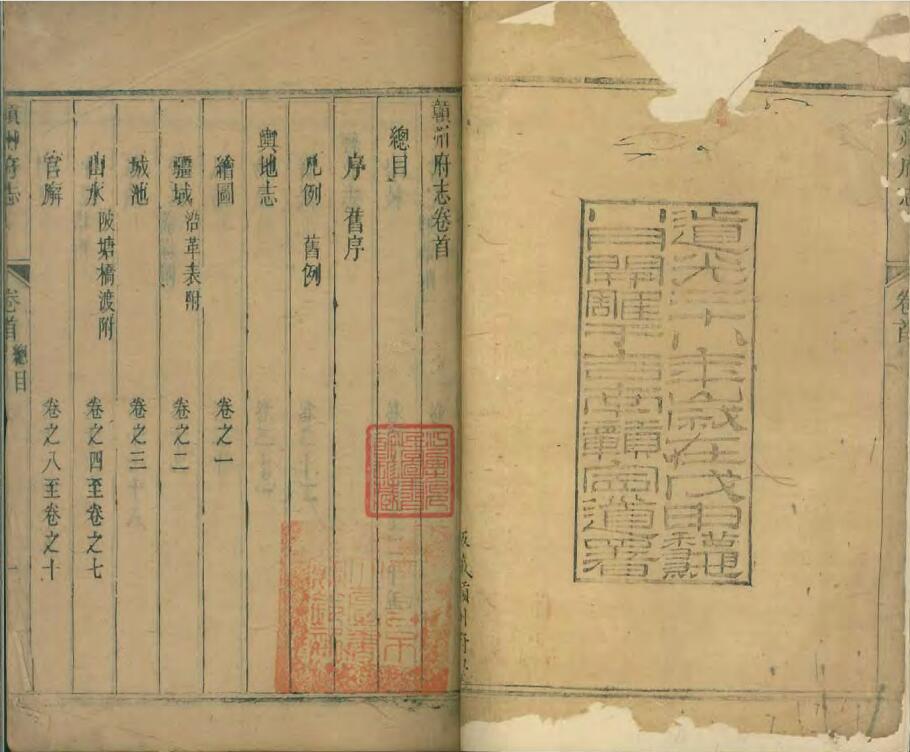 道光二十八年歲在戊申龝
月開雕于吉南贛寧道署
贛州府志卷首
總目
序 舊序
凡例 舊例
輿地志
繪圖 卷之一
疆域 沿革表附 卷之二
城池 卷之三
山水 陂塘橋渡附 卷之四至卷之七
官廨 卷之八至卷之十
贛州府志 卷首 總目 一